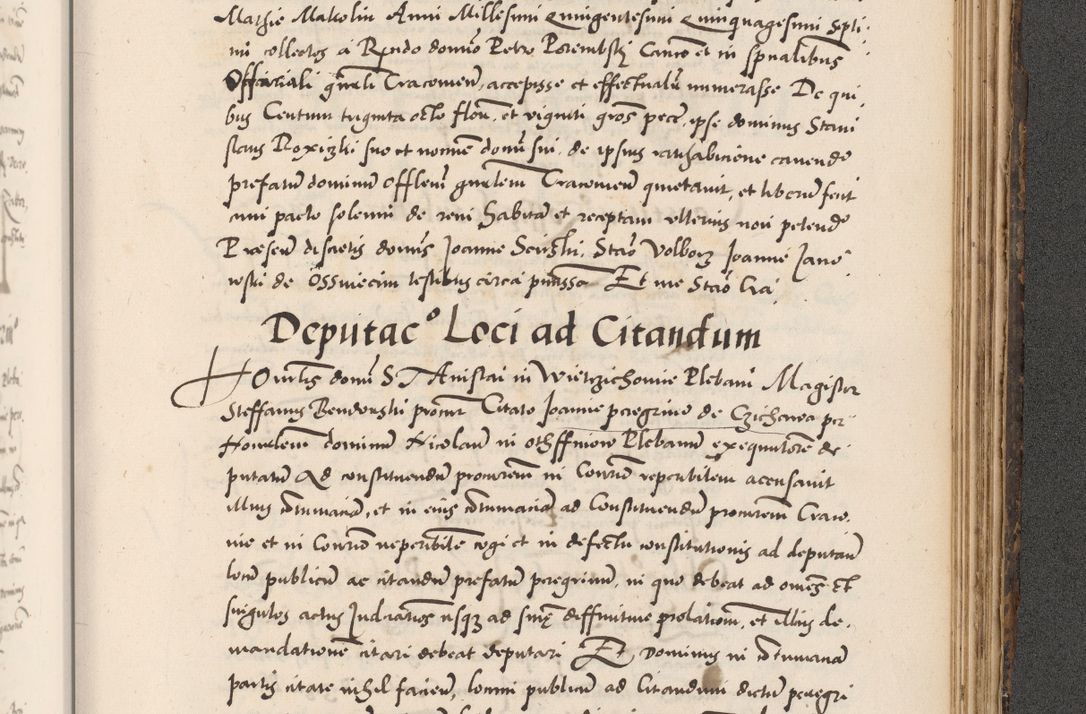 Mathie Makolin Anni Millesimi Quingentesimi Quinquagesimi Septi
mi collectos a Rndo domino Petro Porembski Canco et in spualibus
Officiali gnrali Cracovien, accepisse et effectualr numerasse De qui
bus Centum triginta octo floren, et viginti gros pecc, ipse dominus Stani
slaus Roxiczki suo et nomine domn sui, de ipsius rathabicione cavendo
prefatum dominum Offlem gnralem Cracovien quietavit, et liberum fecit
cum pacto solemni de remi habita et receptam ulterius non petendo
Presen discretis domis Joanne Scirski, Stao Volborz Joanne Jano
wski de Ossviecim testibus circa pmissa Et me Stao Cra
Deputaco Loci ad Citandum
Honblis domn S T Anistai in Wietrzichowie Plebani Magister
Steffanus Bendonski procur Citato Joanne peregrino de Czichawa per
Honbilem dominum Nicolaum in Othffinow Plebanum exequutorem de
putatum Ad constituendum procurem in Conrio repertibilem accusavit
illius contumaciam, et in eius contumaciam ad Constituendum procurem Craco
vie et in Conrio reperibilem cogi et in defectu constitutionis ad deputan
locum publicum ac citandum prefatum peregrinum, in quo debeat ad omnes et
singulos actus Judiciarios usque ad sniae diffinitive prolationem, et illius de
mandationem citari debeat deputari Et Dominus in contumacia
partis citate nihil facien, locum publicum ad Citandum dictum peregri